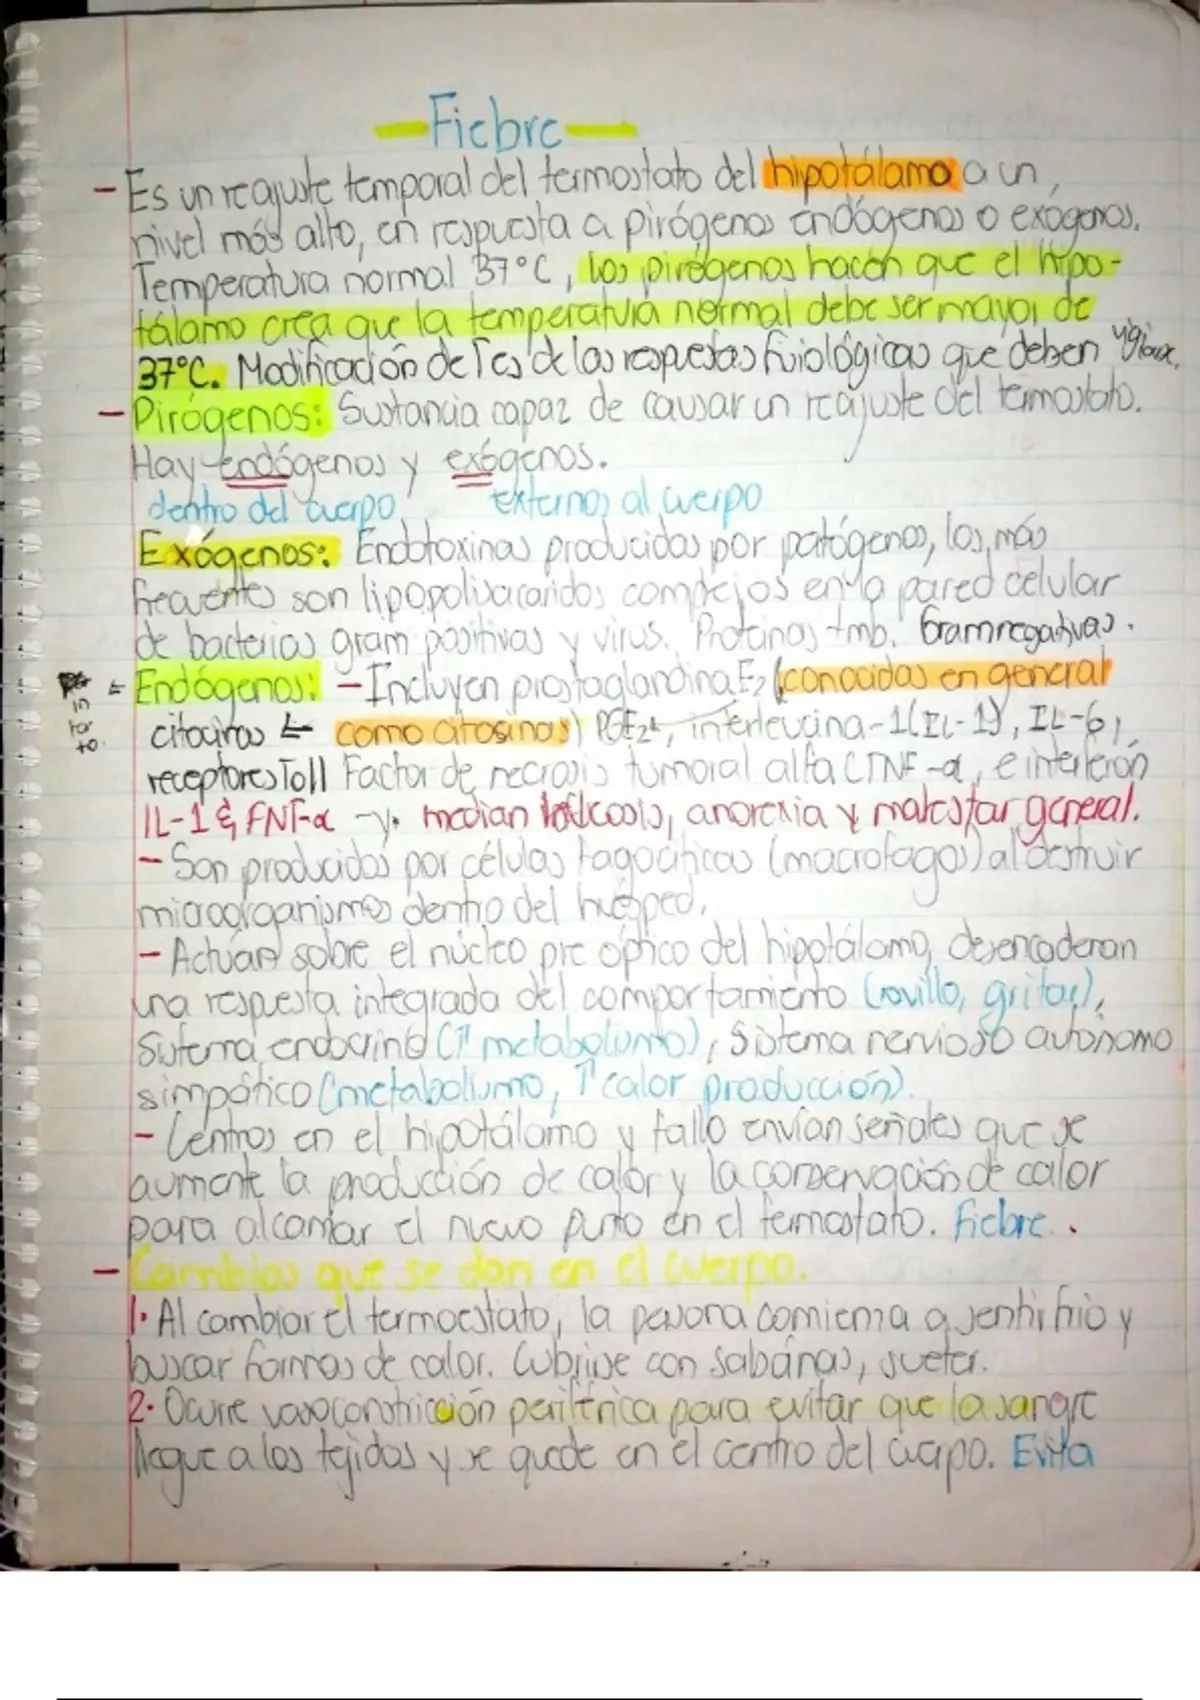 -Fiebre-
- Es un reajuste temporal del termostato del hipotálamo a un
nivel más alto, en respuesta a pirógenos endógenos o exógenos.
Temperatura normal 37°C, los pirógenos hacen que el hipo-
tálamo crea que la temperatura normal debe ser mayor de
37°C. Modificación de Tcs de las respuestas fisiológicas que deben
- Pirógenos: Sustancia capaz de causar un reajuste del termostato.
Hay endógenos y exógenos.
dentro del cuerpo externos al cuerpo
Exógenos: Endotoxinas producidas por patógenos, los más
frecuentes son lipopolisacaridos complejos en la pared celular
de bacterias gram positivas y virus. Proteinas tmb. Gramnegativas.
Endógenos: - Incluyen prostaglandina E2 (conocidas en general
citocinas como citosinas) PGE2, interleucina-1(IL-1), IL-6,
receptores Toll Factor de necrosis tumoral alfa (TNF-α, e interferón
IL-1 & FNT-α → median anorexia y malestar general.
- Son producidos por células fagocíticas (macrofagos) al destruir
microorganismos dentro del huésped.
- Actúan sobre el núcleo pre óptico del hipotálamo, desencaderan
una respuesta integrada del comportamiento (ovillo, gritar),
Sistema endocrino (↑ metabolismo), Sistema nervioso autónomo
simpático (metabolismo, ↑ calor producción).
- Centros en el hipotálamo y tallo envían señales que se
aumente la producción de calor y la conservación de calor
para alcanzar el nuevo punto en el termostato. Fiebre.
- Cambios que se dan en el cuerpo.
1. Al cambiar el termoestato, la persona comienza a sentir frio y
buscar formas de calor. Cubrirse con sabánas, sueter.
2. Ocurre vasoconstricción periférica para evitar que la sangre
llegue a los tejidos y se quede en el centro del cuerpo. Evita